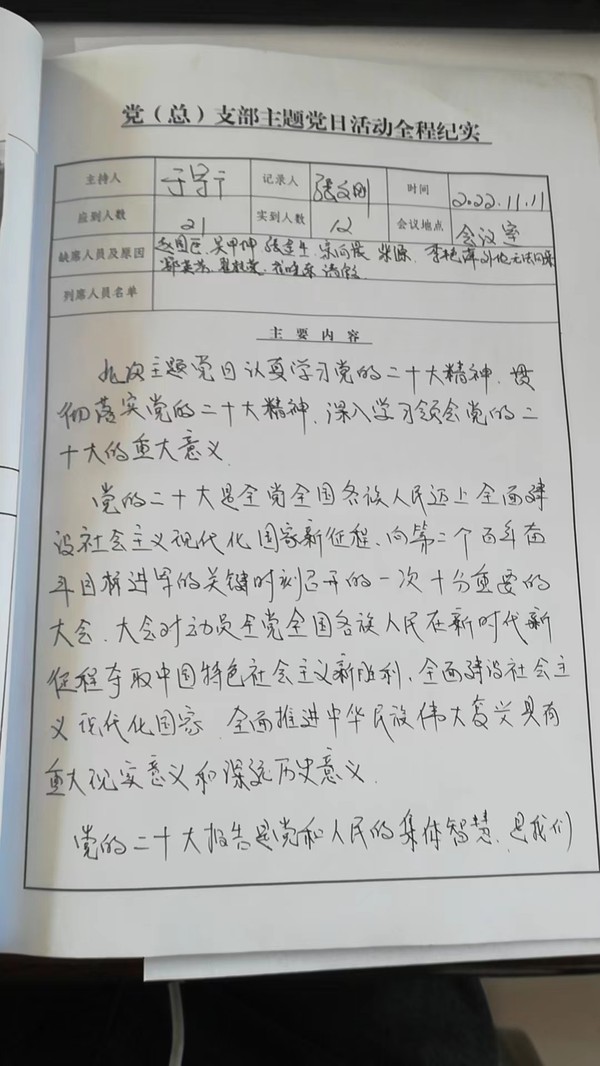 党（总）支部主题党日活动全程纪实
主持人 于早 记录人 张文刚 时间 2022.11.11
应到人数 21 实到人数 12 会议地点 会议室
缺席人员及原因
列席人员名单
主要内容
九次主题党日认真学习党的二十大精神、贯
彻落实党的二十大精神、深入学习领会党的二
十大的重大意义.
党的二十大是全党全国各族人民迈上全面建
设社会主义现代化国家新征程、向第二个百年奋
斗目标进军的关键时刻召开的一次十分重要的
大会、大会对动员全党全国各族人民在新时代新
征程夺取中国特色社会主义新胜利、全面建设社会主
义现代化国家、全面推进中华民族伟大复兴具有
重大现实意义和深远历史意义.
党的二十大报告是党和人民的集体智慧、是我们